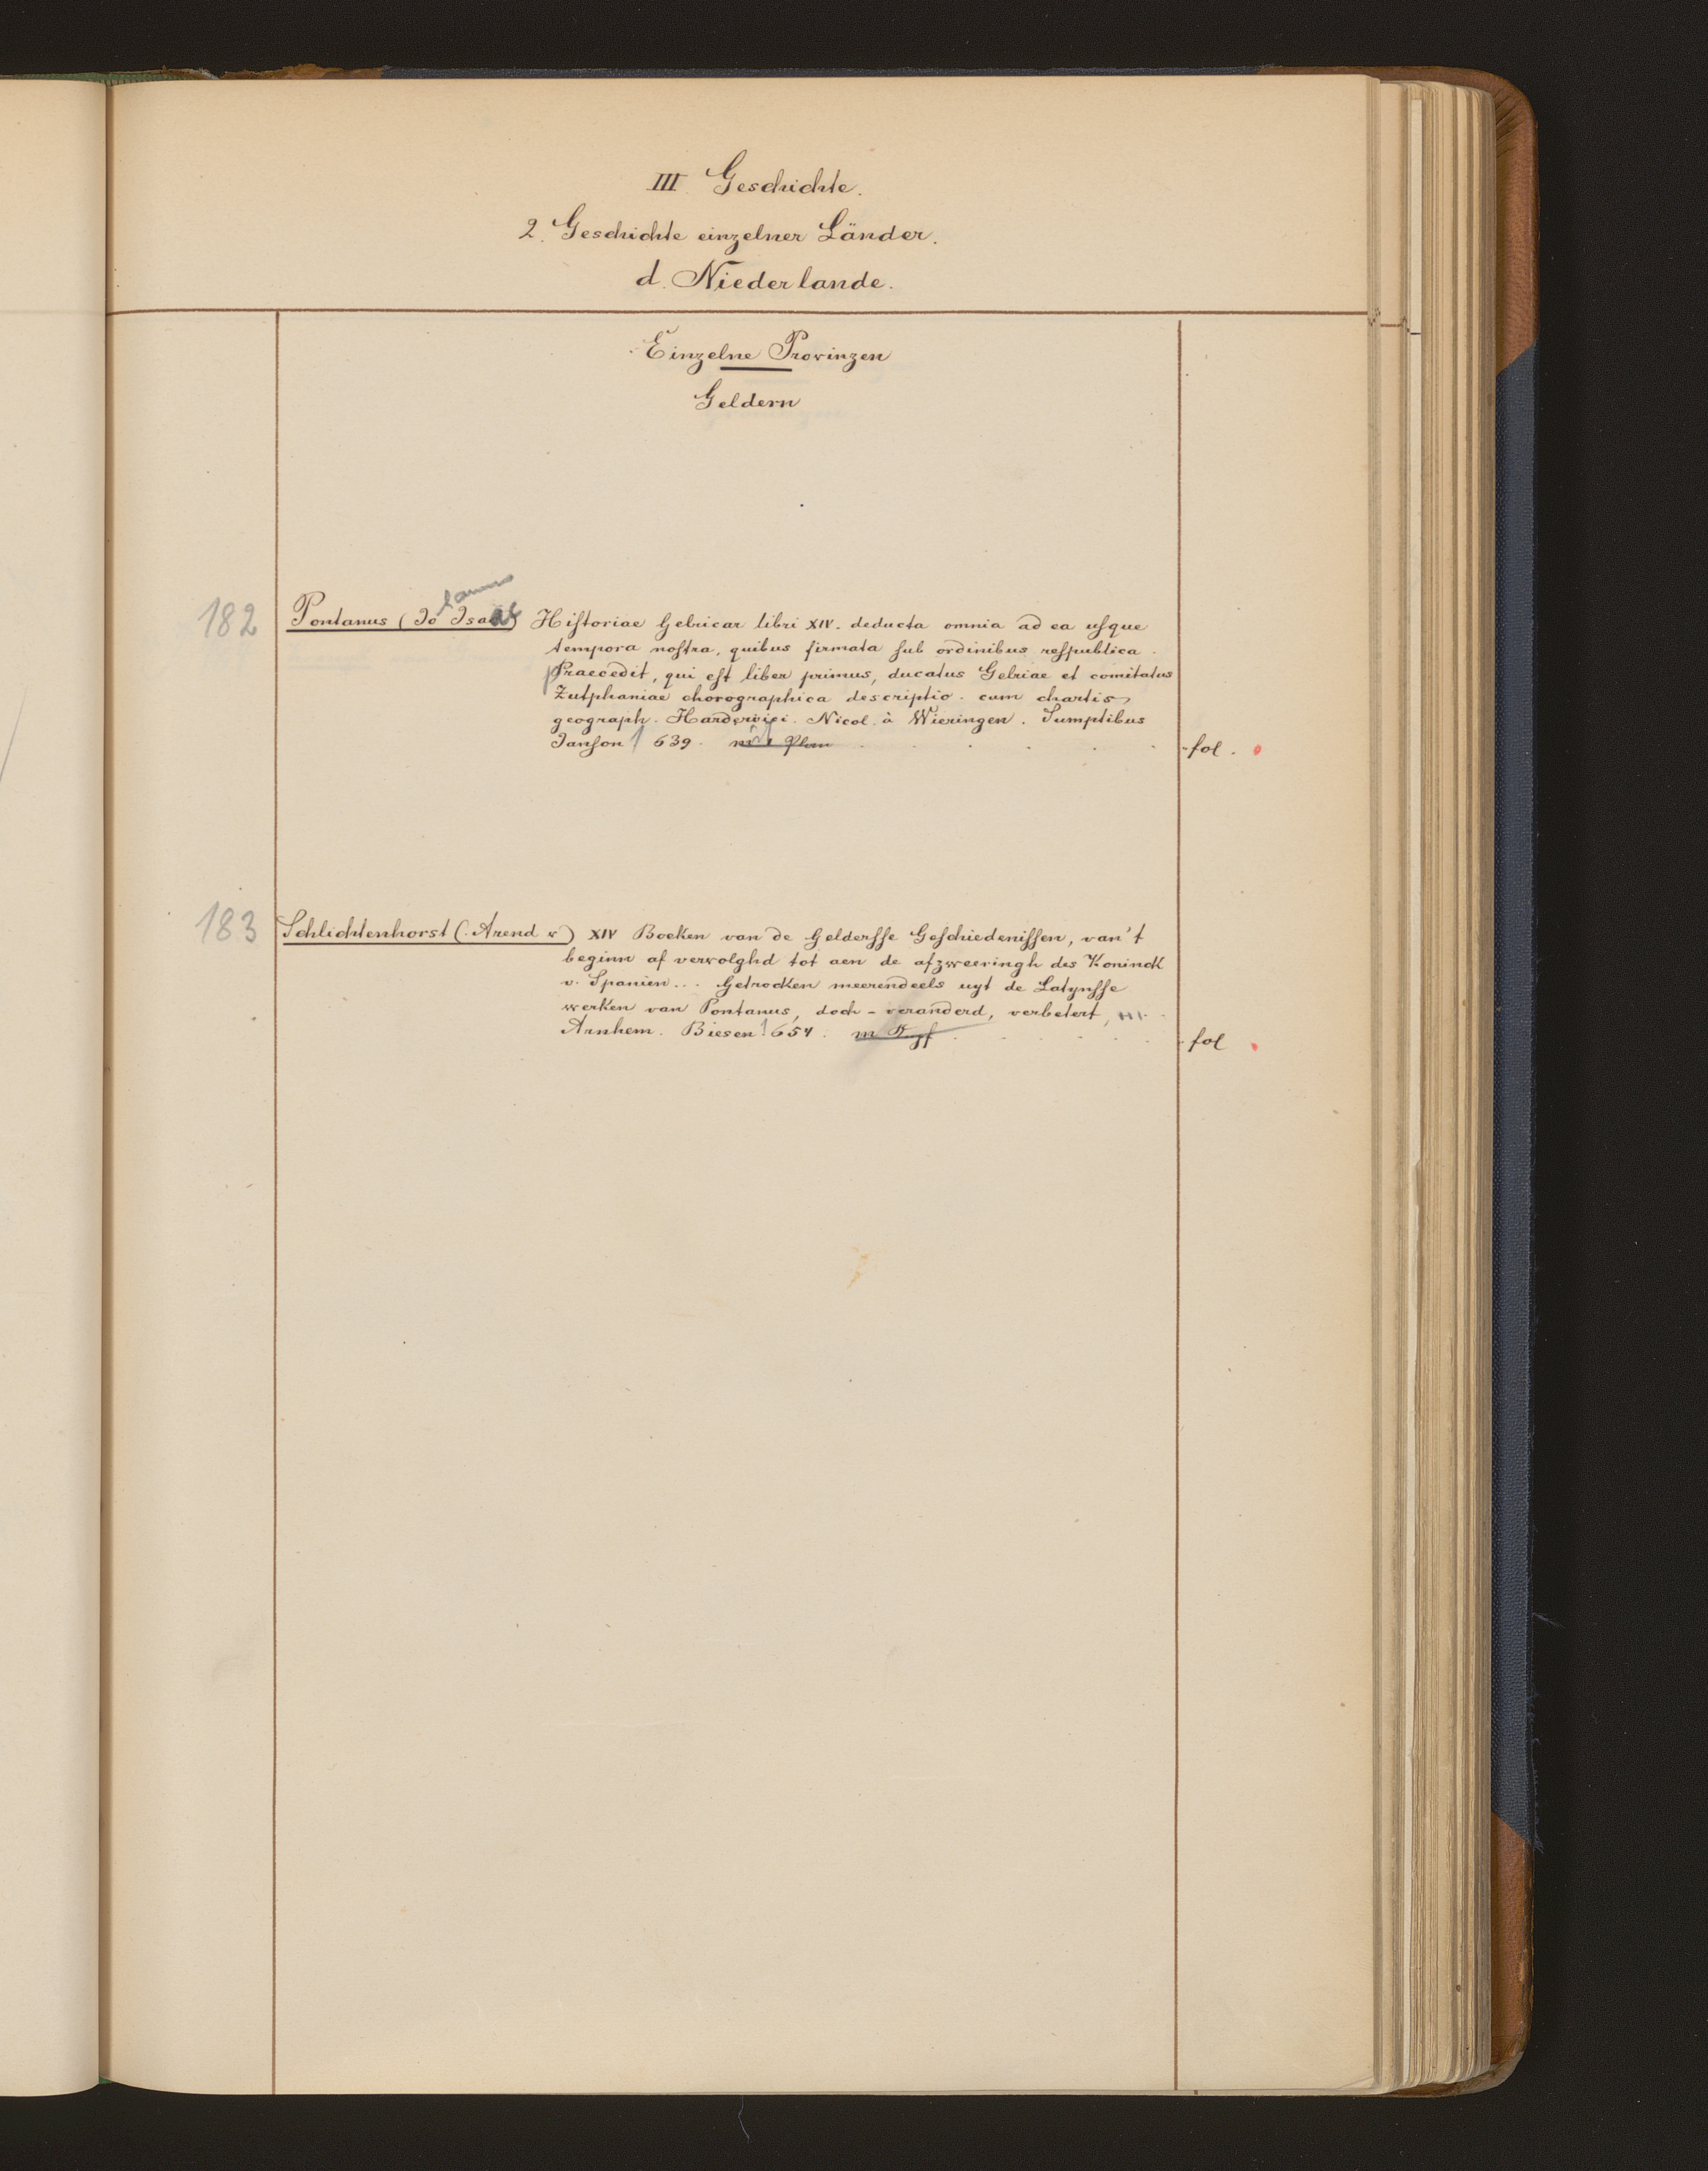 III Geschichte.
2. Geschichte einzelner Länder.
d. Niederlande.
Einzelne Provinzen
Geldern
182 Pontanus (Jo Isa Hiſtoriae Gelricae libri XIV. deducta omnia ad ea uſque
tempora noſtra, quibus firmata ſub ordinibus reſpublica.
Praecedit, qui eſt liber primus, ducatus Gelriae et comitatus
Zutphaniae chorographica descriptio. cum chartis
geograph. Hardervici. Nicol. à Wieringen. Sumptibus
Janſon 1639. mit Plan fol.
183 Schlichtenhorst (Arend v) XIV Boeken van de Gelderſſe Geſchiedeniſſen, van't
beginn af vervolghd tot aen de afzweeringh des Koninck
v. Spanien... Getrocken meerendeels uyt de Latynſſe
werken van Pontanus, doch - veranderd, verbetert,
Arnhem. Biesen 1654. m Kpf fol